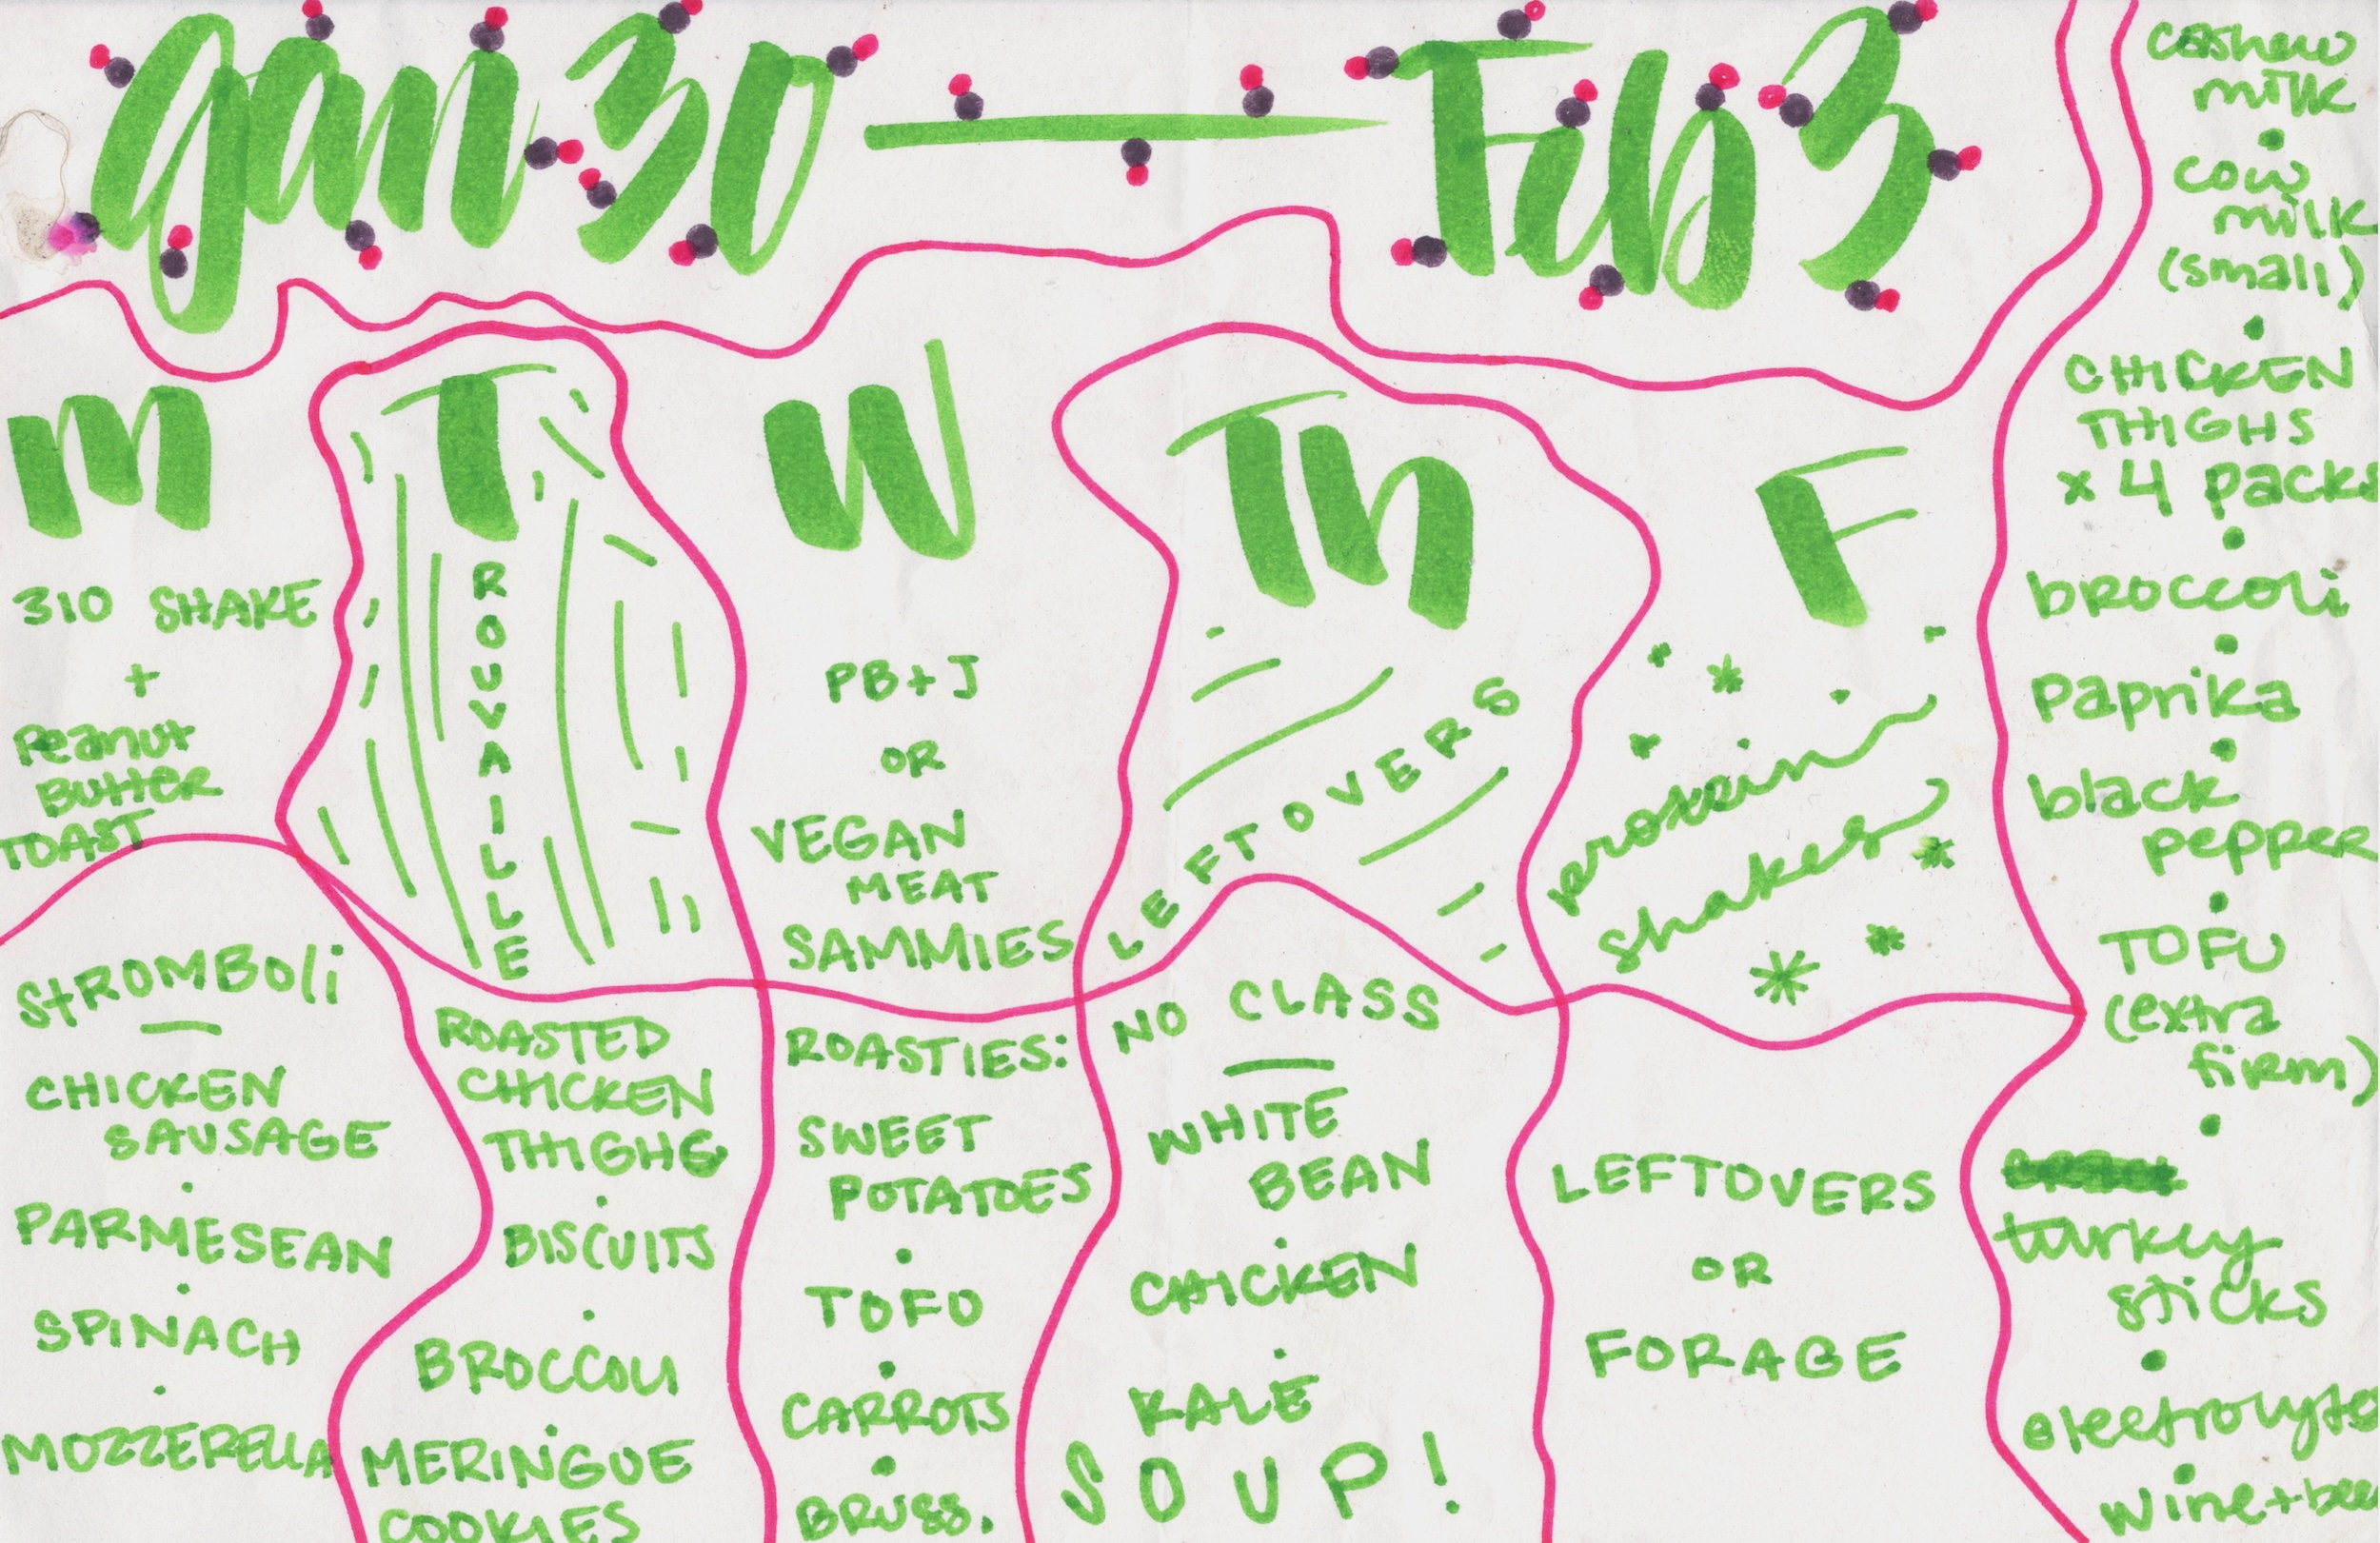 Jan 30 — Feb 3
M
310 SHAKE
+
Peanut
BUTTER
TOAST
T
ROUVAILLE
W
PB+J
OR
VEGAN
MEAT
SAMMIES
Th
LEFTOVERS
F
protein
shakes
STROMBOLi
—
CHICKEN
SAUSAGE
PARMESEAN
SPINACH
MOZZERELLA
ROASTED
CHICKEN
THIGHS
BISCUITS
BROCCOLI
MERINGUE
COOKIES
ROASTIES:
SWEET
POTATOES
TOFU
CARROTS
BRUSS.
NO CLASS
—
WHITE
BEAN
CHICKEN
KALE
SOUP!
LEFTOVERS
OR
FORAGE
cashew
milk
cow
milk
(small)
CHICKEN
THIGHS
x 4 packs
broccoli
paprika
black
pepper
TOFU
(extra
firm)
turkey
sticks
electrolytes
wine+bee